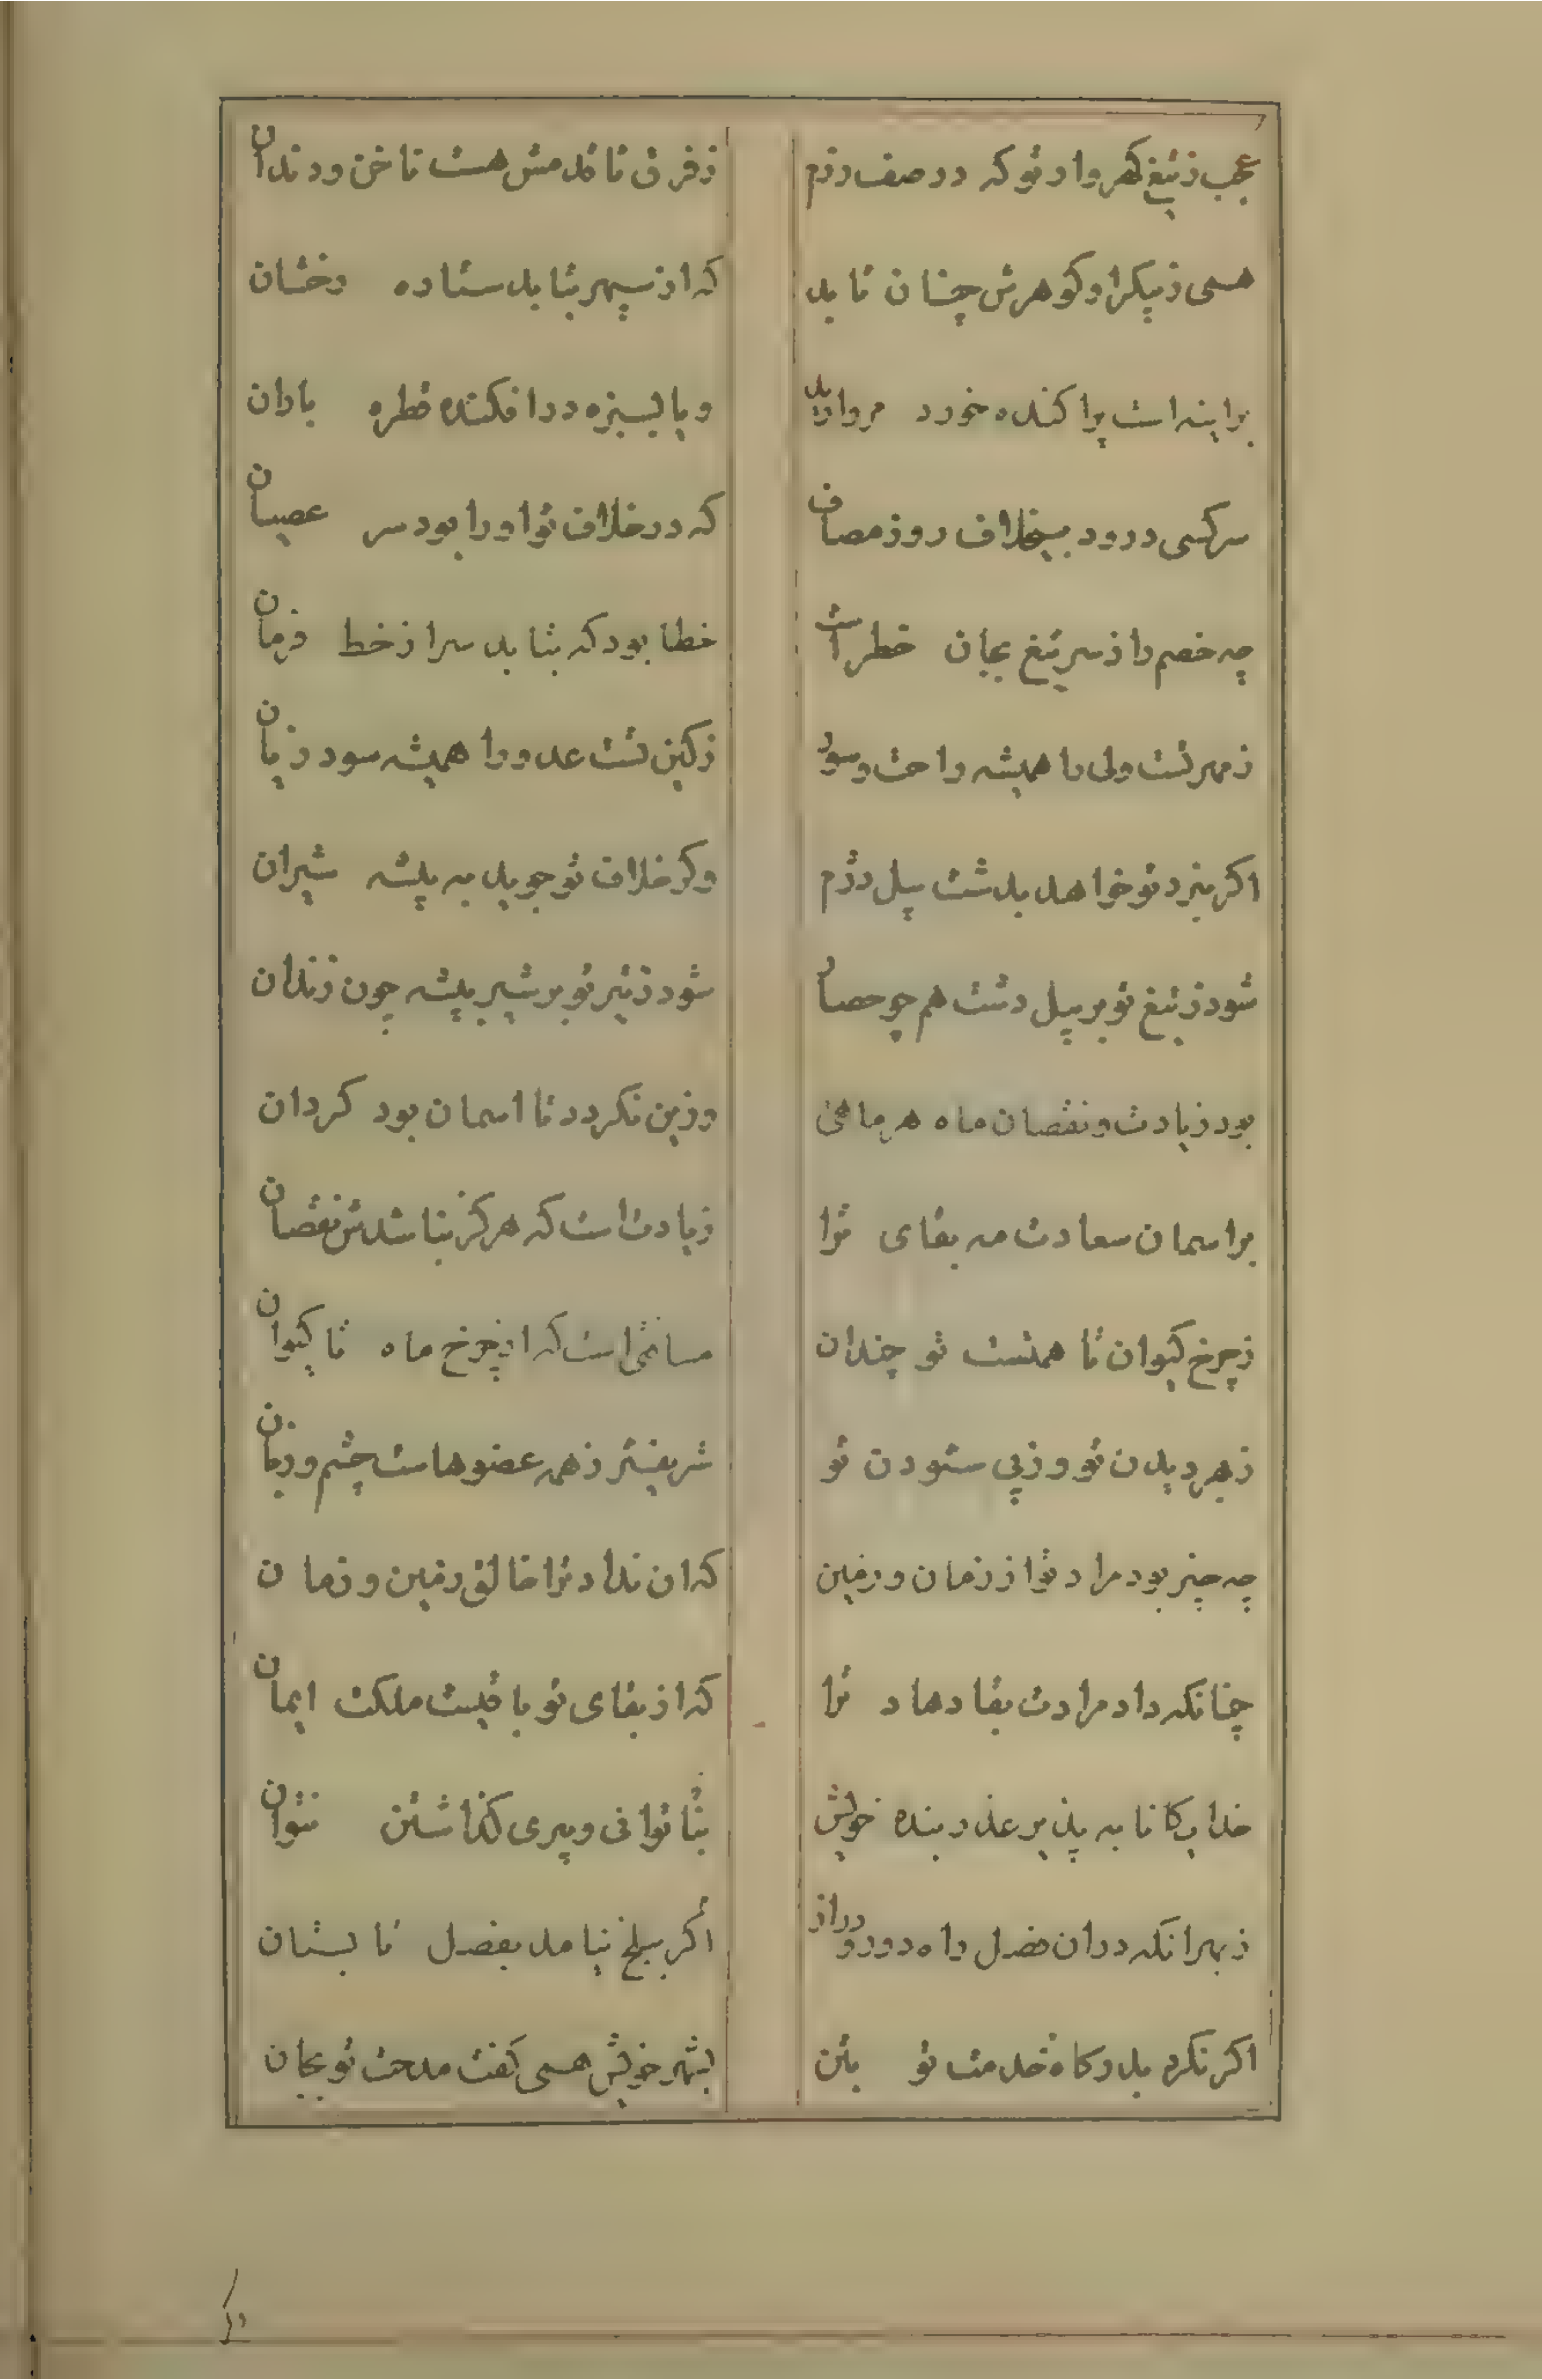 عجب زتیغ کهروار تو که در صف رزم
زفرق تا قدمش هست ناخن و دندان
همی زپیکر او کوهرش چنان تابد
که از سپهر بتابد ستاره رخشان
براینه است پراکنده خورد مروارید
و یا بسبزه در افکنده قطره باران
سرکسی درود بیخلاف روز مصاف
که در خلاف تو او را بود سر عصیان
چه خصم را ز سر تیغ بجان خطر است
خطا بود که بتابد سر از خط فرمان
زمهر تست ولی را همیشه راحت و سود
زکین تست عدو را همیشه سود و زیان
اکر نبرد تو خواهد بدشت پیل دژم
وکر خلاف تو جوید به بیشه شیران
شود زتیغ تو بر پیل دشت هم چو حصار
شود زتیر تو بر شیر بیشه چون زندان
بود زیادت و نقصان ماه هر ماهی
وزین نکردد تا اسمان بود کردان
بر اسمان سعادت مه بقای ترا
زیادت است که هرکز نباشدش نقصان
زچرخ کیوان تا همتست تو چندان
مسافتی است که از چرخ ماه تا کیوان
زبهر دیدن تو وز پی ستودن تو
شریفتر ز همه عضوهاست چشم و زبان
چه چیز بود مراد ترا ز زمان و زمین
که ان نداد ترا خالق زمین و زمان
چنانکه داد مرادت بقا دهاد ترا
که از بقای تو باقیست ملکت ایمان
خدایکانا به پذیر عذر بنده خویش
بناتوانی و پیری کذاشتن نتوان
زبهر انکه در ان فصل راه دور و دراز
اکر ببلخ نیامد بفصل تابستان
اکر نکرد بدرکاه خدمت تو بتن
بشهر خویش همی کفت مدحت تو بجان